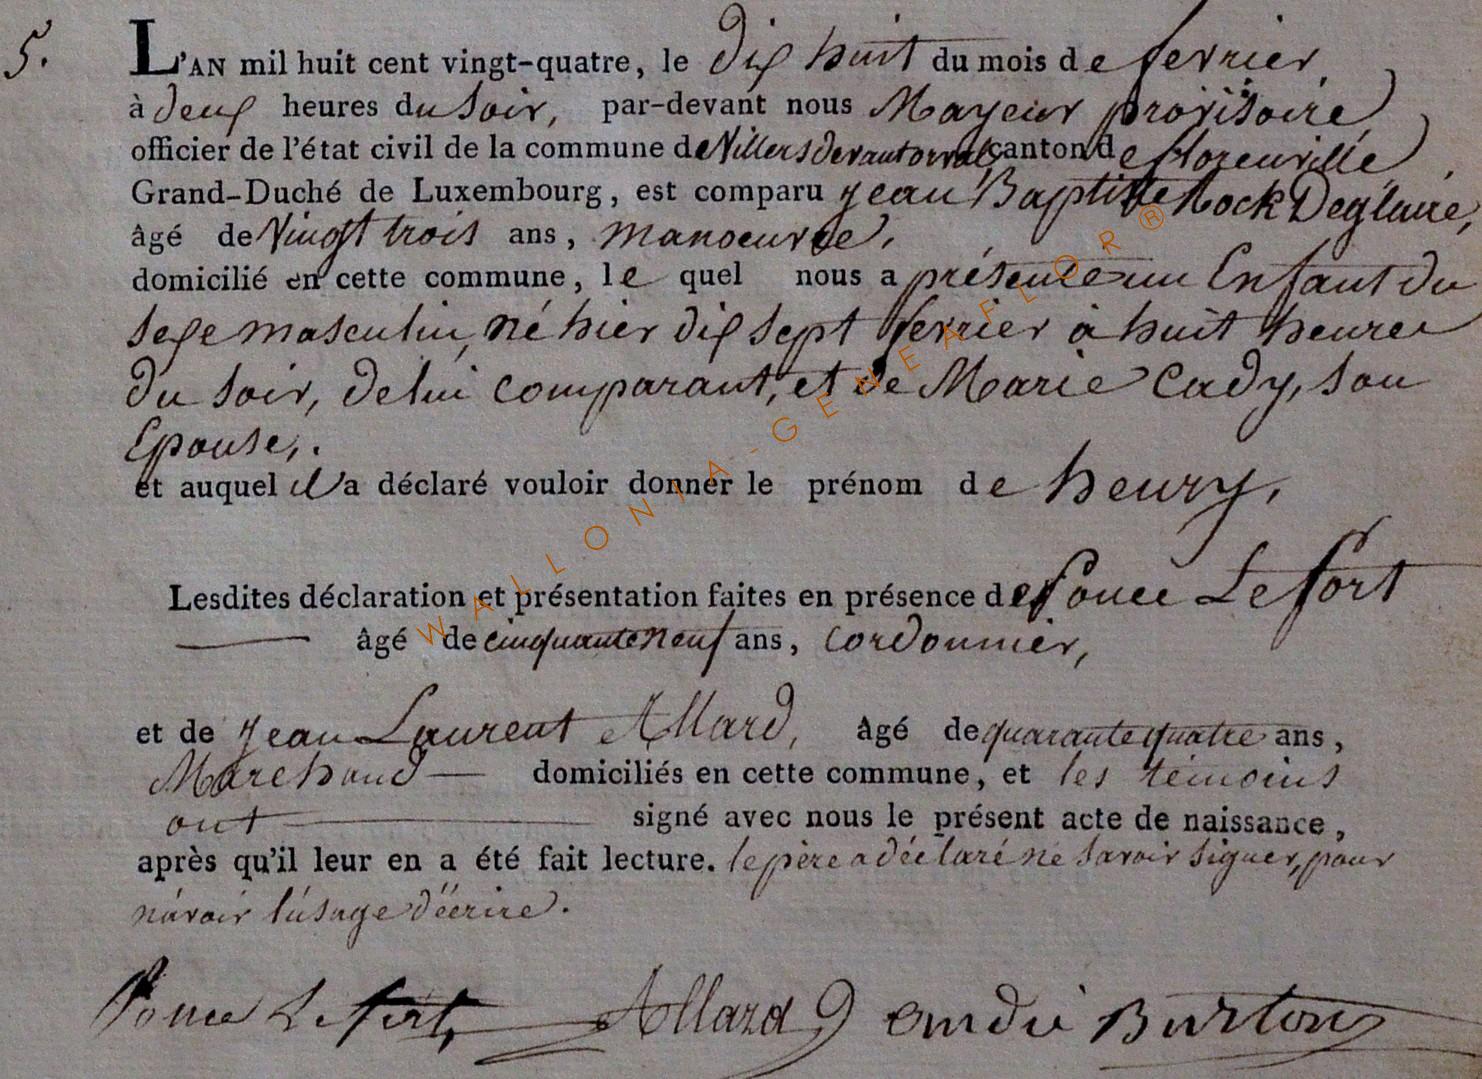 5.
L'AN mil huit cent vingt-quatre, le dix huit du mois de fevrier,
à deux heures du soir, par-devant nous Mayeur provisoire,
officier de l'état civil de la commune de Villersdevantorval, canton de florenville,
Grand-Duché de Luxembourg, est comparu jean Baptiste Rock Deglaire,
âgé de Vingt trois ans, manoeuvre,
domicilié en cette commune, le quel nous a présenté un Enfant du
sexe masculin, né hier dix sept fevrier à huit heures
du soir, de lui comparant, et de Marie Cady, son
Epouse,.
et auquel il a déclaré vouloir donner le prénom de henry,
Lesdites déclaration et présentation faites en présence de Ponce Lefort
âgé de cinquante neuf ans, cordonnier,
et de jean Laurent Allard, âgé de quarante quatre ans,
Marchand domiciliés en cette commune, et les témoins
ont signé avec nous le présent acte de naissance,
après qu'il leur en a été fait lecture. le père a déclaré ne savoir signer, pour
n'avoir l'usage d'écrire.
Ponce Lefort Allard André Burton
WALLONIA-GENEAFLOR®